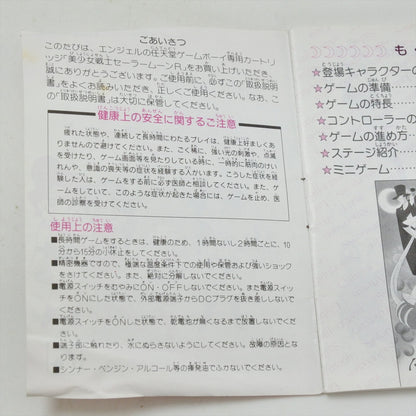 ごあいさつ
このたびは、エンジェルの任天堂ゲームボーイ専用カートリ
ッジ「美少女戦士セーラームーンR」をお買い上げいただき、
誠にありがとうございます。ご使用前に、必ずこの「取扱説
明書」をよくお読みいただき、正しくご使用ください。なお、こ
の「取扱説明書」は大切に保管してください。
健康上の安全に関するご注意
疲れた状態や、連続して長時間にわたるプレイは、健康上好ましくあ
りませんので避けてください。また、ごく稀に、強い光の刺激や、点滅
を受けたり、ゲーム画面等を見たりしている時に、一時的に筋肉のけい
れんや、意識の喪失等の症状を経験する人がいます。こうした症状を経
験した人は、ゲームをする前に必ず医師と相談してください。また、ゲ
ームをしていて、このような症状が起きた場合には、ゲームを止め、医
師の診察を受けてください。
使用上の注意
■長時間ゲームをするときは、健康のため、1時間ないし2時間ごとに、10
分から15分の小休止をしてください。
■精密機器ですので、極端な温度条件下での使用や保管および強いショック
をさけてください。また、絶対に分解しないでください。
■電源スイッチをむやみにON・OFFしないでください。また電源スイ
ッチをONにした状態で、外部電源端子からDCプラグを抜き差ししない
でください。
■電源スイッチをONした状態で、乾電池が無くなるまで放置しないでくだ
さい。
■端子部に触れたり、水にぬらさないようにしてください。故障の原因とな
ります。
■シンナー・ベンジン・アルコール等の揮発油でふかないでください。
も・
★登場キャラクターの
★ゲームの準備
★ゲームの特長
★コントローラーの
★ゲームの進め方
★ステージ紹介
★ミニゲーム